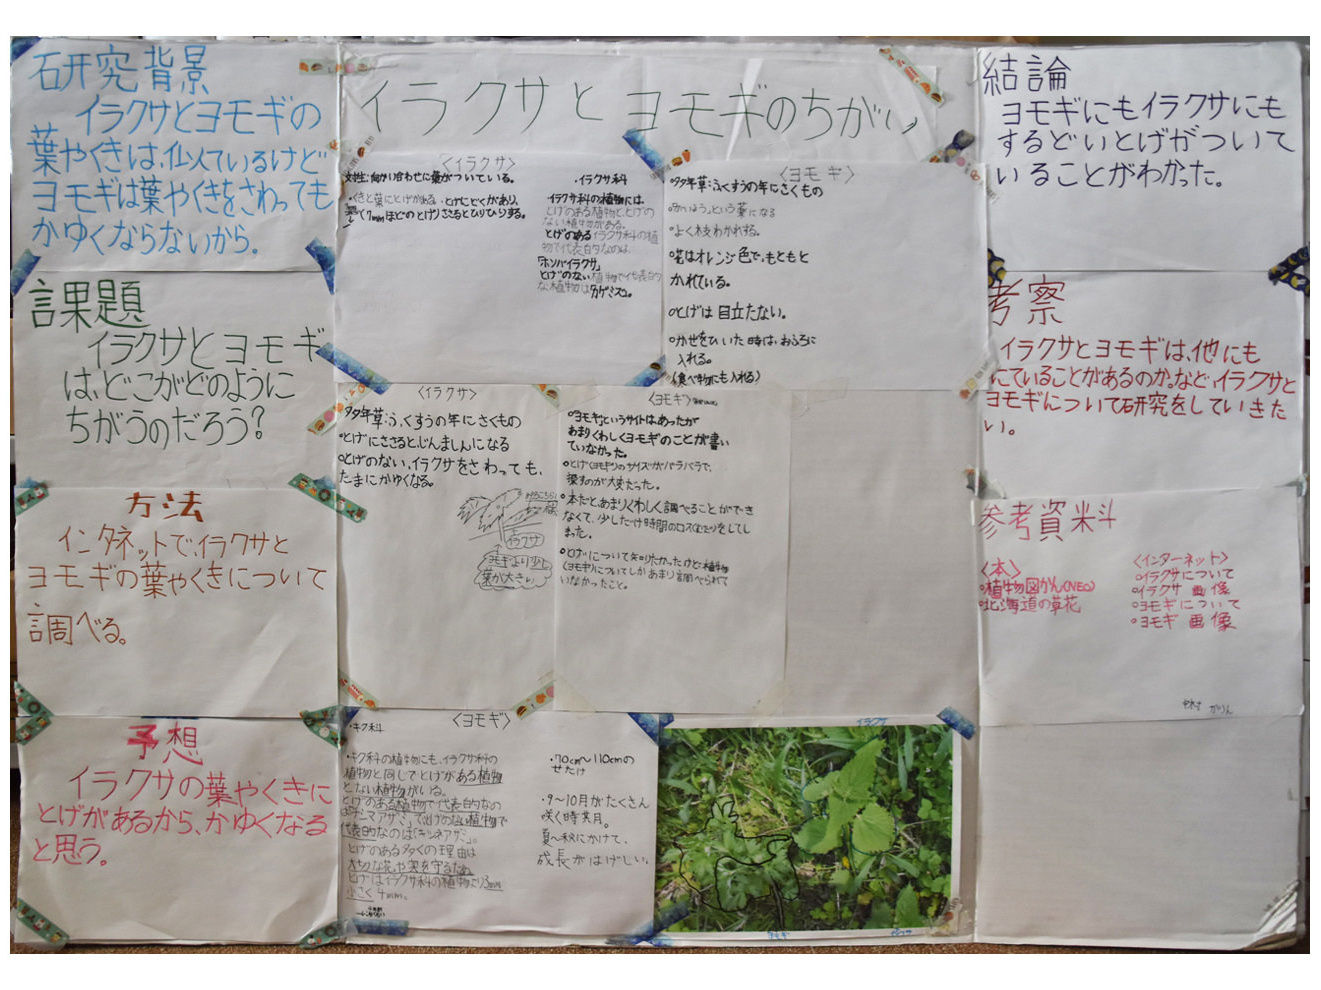 イラクサとヨモギのちがい
研究背景
イラクサとヨモギの
葉やくきは、似ているけど
ヨモギは葉やくきをさわっても
かゆくならないから。
課題
イラクサとヨモギ
は、どこがどのように
ちがうのだろう?
方法
インタネットで、イラクサと
ヨモギの葉やくきについて
調べる。
予想
イラクサの葉やくきに
とげがあるから、かゆくなる
と思う。
〈イラクサ〉
向かい合わせに葉がついている。
・くきと葉にとげがある。とげにどくがあり、
7mmほどのとげ。ささるとひりひりする。
・イラクサ科
イラクサ科の植物には、
とげのある植物と、とげの
ない植物がある。
とげのあるイラクサ科の植
物で代表的なのは、
「ホソバイラクサ」
とげのない植物で代表的
な植物は「カゲミズ」。
〈ヨモギ〉
・多年草:ふくすうの年にさくもの
という薬になる
・よく枝わかれする。
・花はオレンジ色で、もともと
かれている。
・とげは目立たない。
・かぜをひいた時は、おふろに
入れる。
(食べ物にも入れる)
〈イラクサ〉
多年草:ふくすうの年にさくもの
・とげにささるとじんましんになる
・とげのない、イラクサをさわっても、
たまにかゆくなる。
イラクサ
ヨモギより少し
葉が大きい。
〈ヨモギ〉
・「ヨモギ」というサイトはあったが
あまりくわしくヨモギのことが書い
ていなかった。
・とげ(ヨモギ)のサイズがバラバラで、
探すのが大変だった。
・本だと、あまりくわしく調べることができ
なくて、少しだけ時間のロスをしてし
まった。
・とげについて知りたかったけど、植物
(ヨモギ)についてしかあまり調べられて
いなかったこと。
〈ヨモギ〉
・キク科
・キク科の植物にも、イラクサ科の
植物と同じでとげがある植物
とない植物がいる。
とげのある植物で代表的なの
は「チシマアザミ」で、とげのない植物で
代表的なのは「キツネアザミ」。
とげのある多くの理由は
大切な花や実を守るため。
とげはイラクサ科の植物より3mm
小さく4mm。
・70cm〜110cmの
せたけ
・9〜10月がたくさん
咲く時期。
夏〜秋にかけて、
成長がはげしい。
イラクサ
ヨモギ
イラクサ
結論
ヨモギにもイラクサにも
するどいとげがついて
いることがわかった。
考察
イラクサとヨモギは、他にも
にていることがあるのか。など、イラクサと
ヨモギについて研究をしていきた
い。
参考資料
〈本〉
・植物図かん(NEO)
・北海道の草花
〈インターネット〉
・イラクサについて
・イラクサ 画像
・ヨモギについて
・ヨモギ 画像